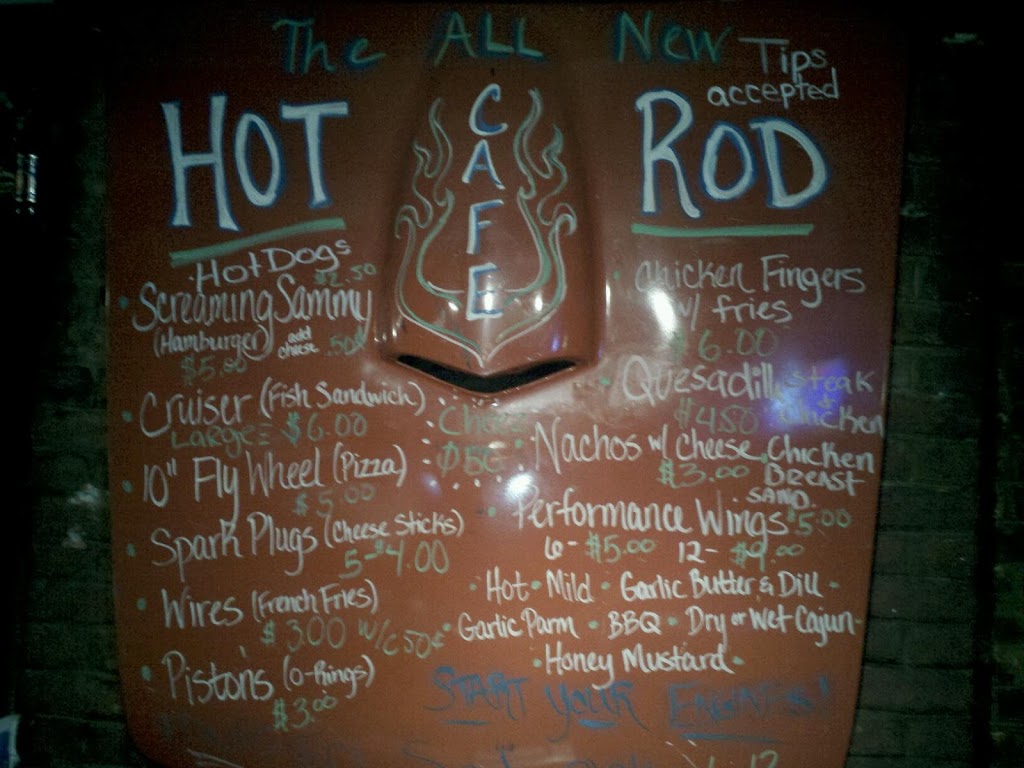 The ALL New
Tips
accepted
HOT
CAFE
ROD
• HotDogs
$2.50
• Screaming Sammy
(Hamburger) add cheese .50¢
$5.00
• Cruiser (Fish Sandwich)
LARGE $6.00
• 10" Fly Wheel (Pizza)
$5.00
• Spark Plugs (Cheese Sticks)
5-$4.00
• Wires (French Fries)
$3.00 w/c 50¢
• Pistons (O-Rings)
$3.00
• Chicken Fingers
w/ fries
$6.00
• Quesadilla steak
$4.50 + Chicken
• Nachos w/ Cheese
$3.00
Chicken
Breast
SAND.
$5.00
• Performance Wings
6- $5.00 12- $9.00
• Hot • Mild • Garlic Butter & Dill •
• Garlic Parm • BBQ • Dry or Wet Cajun-
• Honey Mustard •
START YOUR ENGINES!